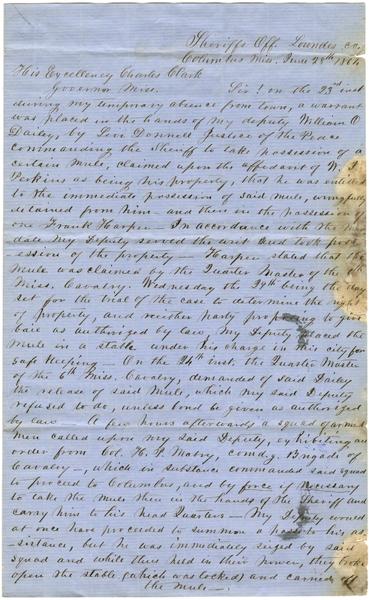 Sheriffs Off. Lowndes Co,
Columbus Miss. June 28th 1864
His Excellency Charles Clark
Governor Miss. Sir! On the 23rd inst
during my temporary absence from town, a warrant
was placed in the hands of my deputy William O
Dailey, by Levi Donnell Justice of the Peace
Commanding the Sheriff to take possession of a
certain Mule, claimed upon the affidavit of W. J.
Perkins as being his property, that he was entitled
to the immediate possession of said Mule, wrongfully
detained from him and there in the possession of
one Frank Harper — In accordance with the man
date My Deputy served the writ and took poss-
ession of the property — Harper stated that the
Mule was claimed by the Quarter Master of the 6th
Miss. Cavalry. Wednesday the 29th being the day
set for the trial of the case to determine the right
of property, and neither party proposing to give
bail as authorized by law. My Deputy placed the
mule in a stable under his charge in this city for
safe keeping. On the 24th inst. the Quarter Master
of the 6th Miss. Cavalry, demanded of said Dailey
the release of said Mule, which my said Deputy
refused to do, unless bond be given as authorized
by law. A few hours afterwards a squad of armed
men called upon my said Deputy, exhibiting an
order from Col. H. P. Mabry, comdg. Brigade of
Cavalry —, which in substance commanded said squad
to proceed to Columbus, and by force if necessary
to take the mule then in the hands of the Sheriff and
carry him to his Head Quarters — My Deputy would
at once have proceeded to summon a posse to his as
-sistance, but he was immediately seized by said
squad and while thus held in their power, they broke
open the stable (which was locked) and carried off
the mule —.